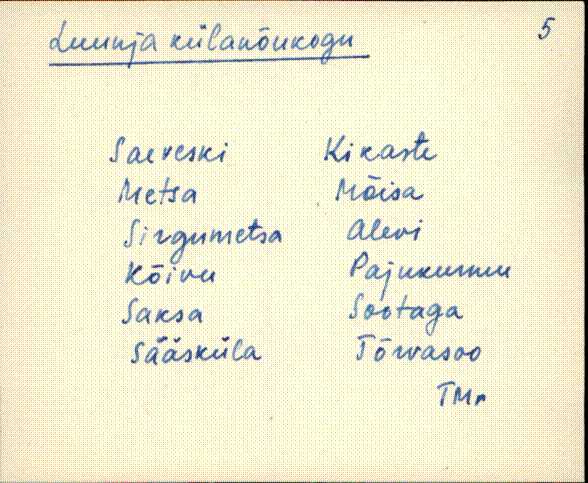 Luunja külanõukogu 5
Saeveski Kikaste
Metsa Mõisa
Sirgumetsa Alevi
Kõivu Pajukurmu
Saksa Sootaga
Sääsküla Tõrvasoo
TMr